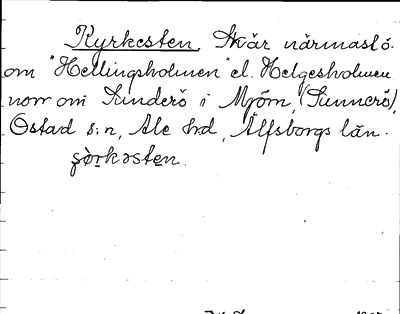 Kyrkesten. Skär närmast ö.
om "Hellingsholmen" el. Helgesholmen
norr om Sunderö i Mjörn, (Sunnerö),
Östad s:n, Ale hrd, Älfsborgs län.
şö̀rkəsten.